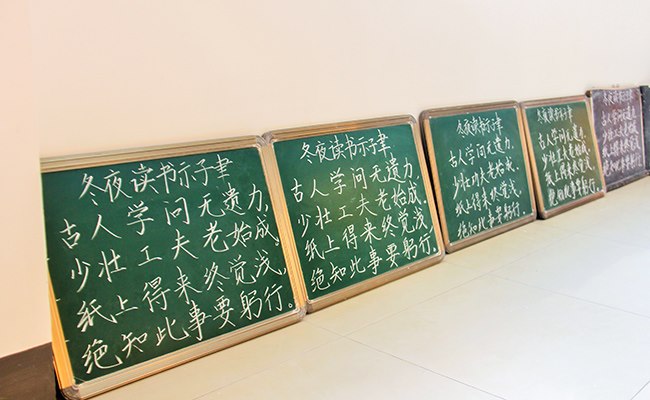 冬夜读书示子聿
古人学问无遗力,
少壮工夫老始成。
纸上得来终觉浅,
绝知此事要躬行。
冬夜读书示子聿
古人学问无遗力,
少壮工夫老始成。
纸上得来终觉浅,
绝知此事要躬行。
冬夜读书示子聿
古人学问无遗力,
少壮工夫老始成,
纸上得来终觉浅,
绝知此事要躬行。
冬夜读书示子聿
古人学问无遗力,
少壮工夫老始成。
纸上得来终觉浅,
绝知此事要躬行。
冬夜读书示子聿
古人学问无遗力
少壮工夫老始成
纸上得来终觉浅
绝知此事要躬行